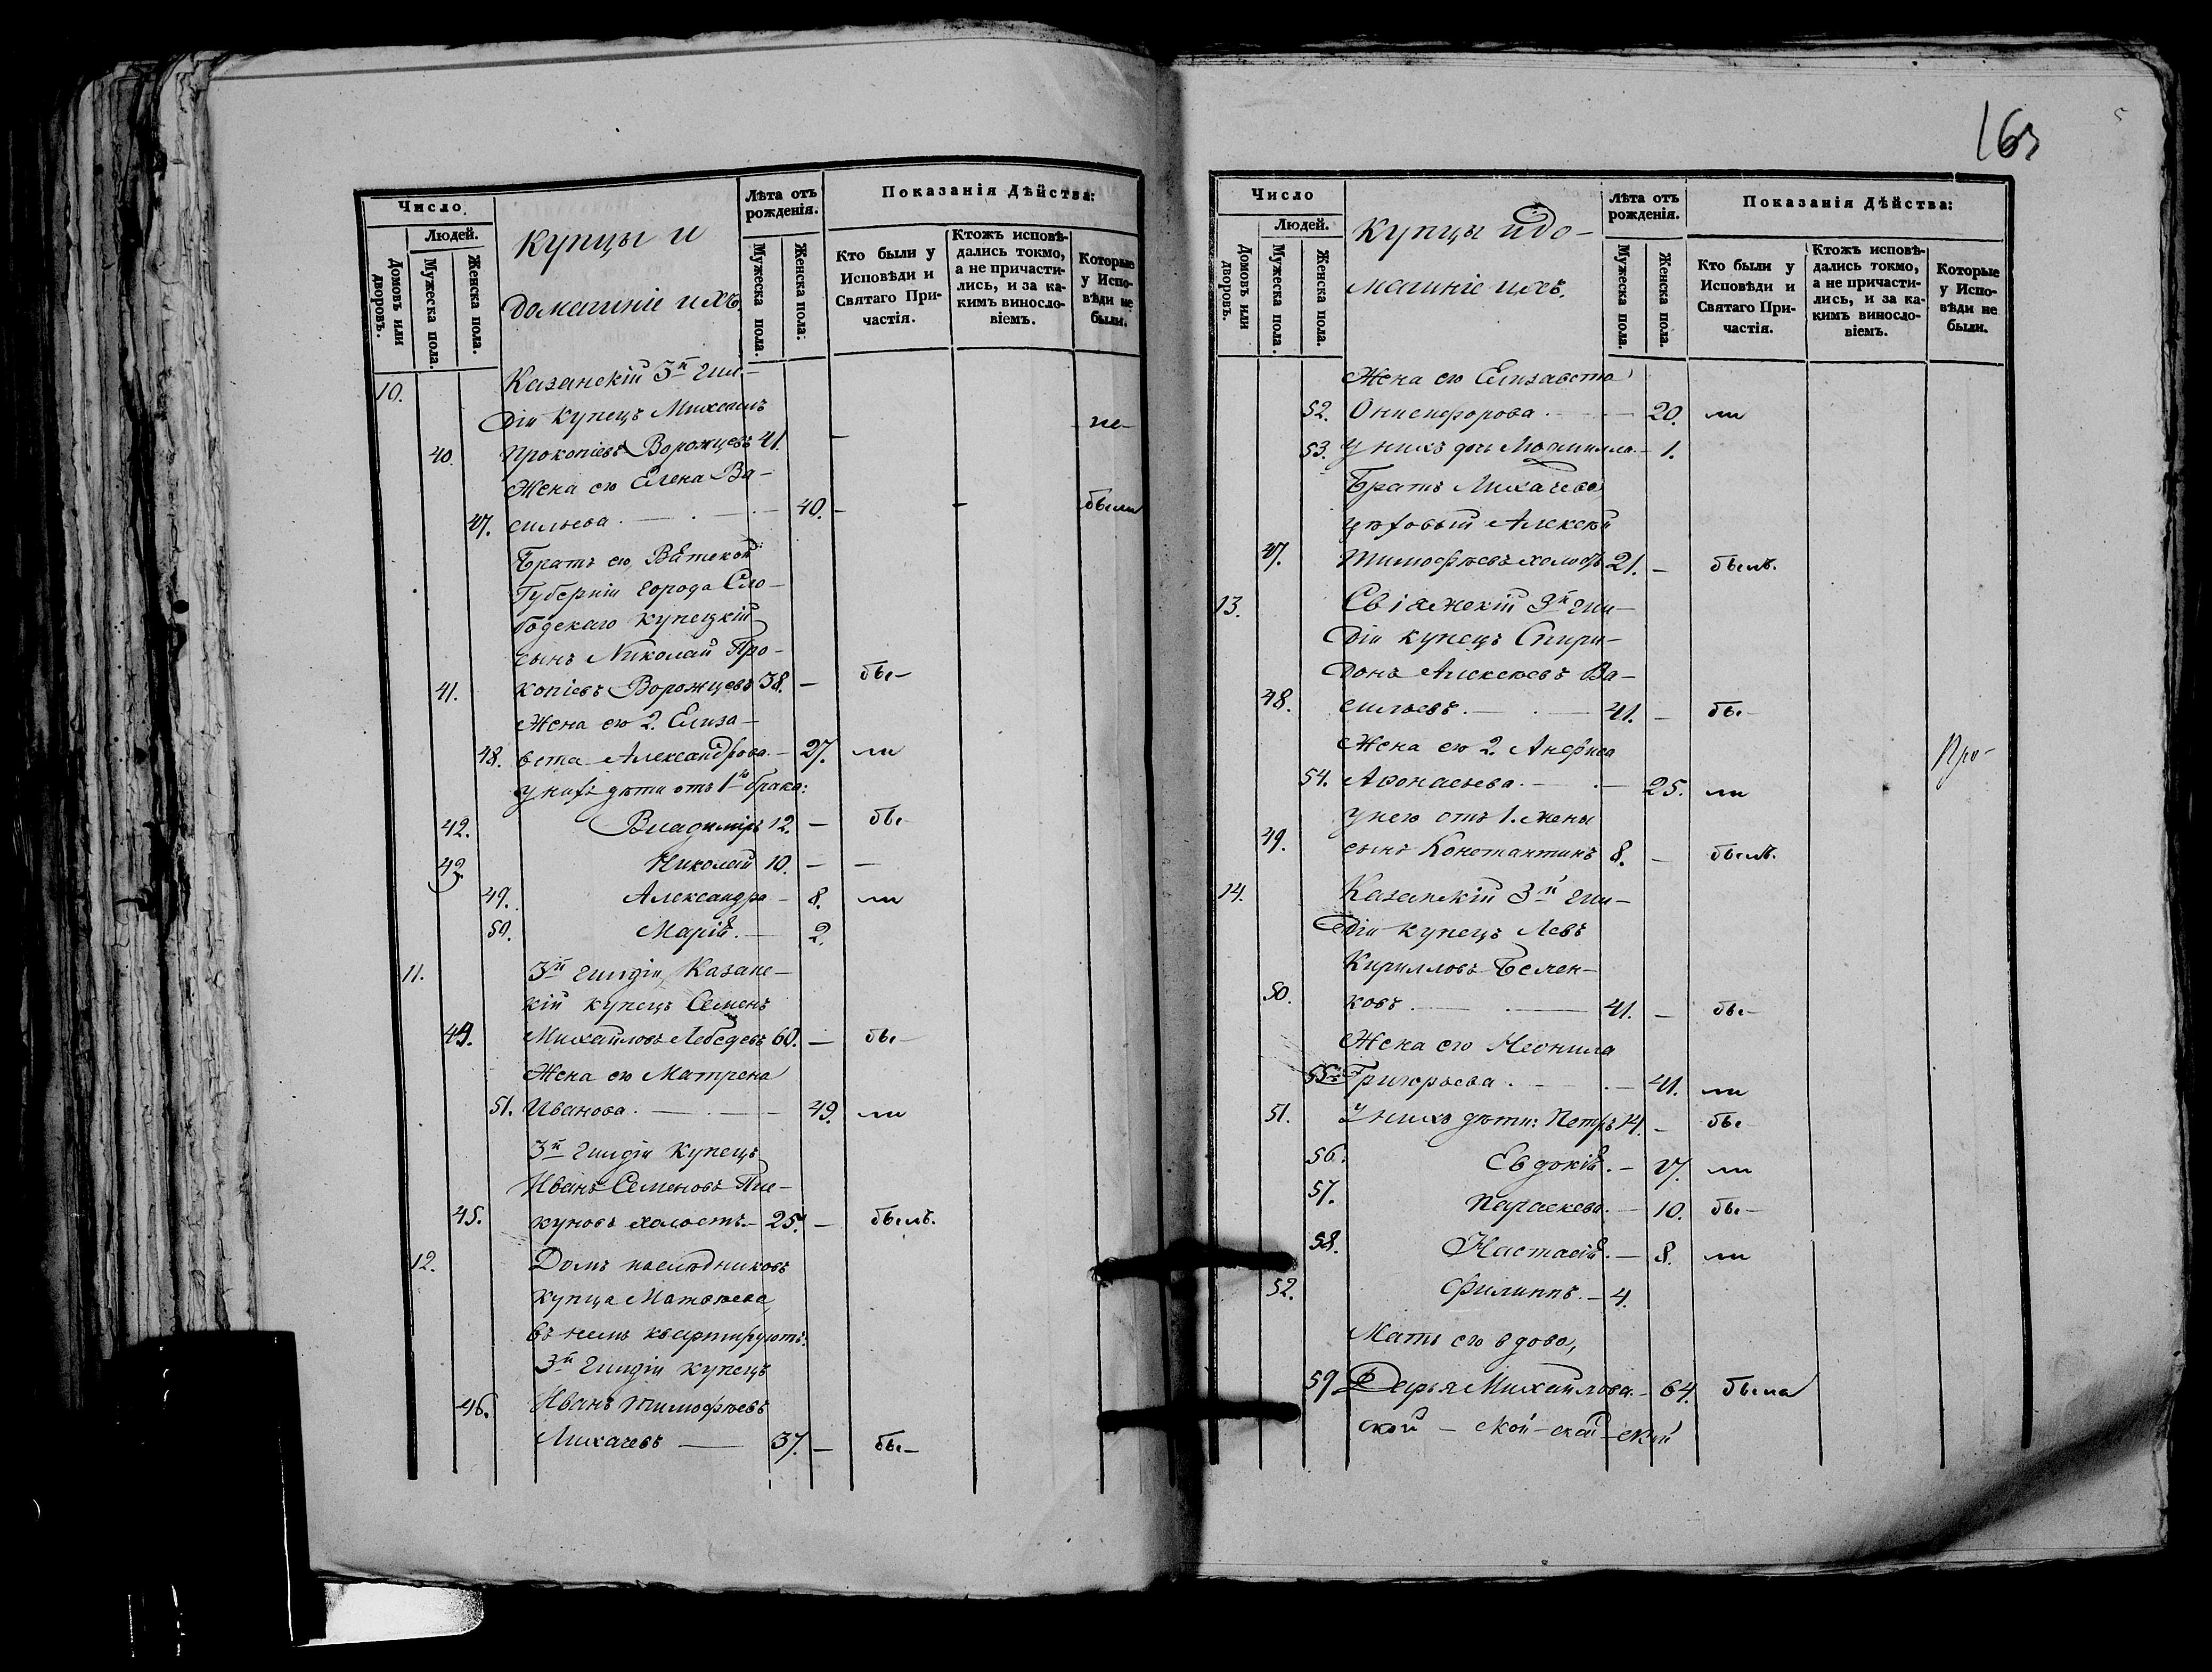 Число
Людей.
Домовъ или дворовъ.
Мужеска пола.
Женска пола.
Купцы и
домашніе ихъ.
Лѣта отъ рожденія.
Мужеска пола.
Женска пола.
Показанія Дѣйства:
Кто были у Исповѣди и Святаго Причастія.
Ктожъ исповѣдались токмо, а не причастились, и за какимъ винословіемъ.
Которые у Исповѣди не были.
10. Казанскій 3й гил-
діи купецъ Михаилъ не-
40. Прокопіевъ Ворожцевъ 41. —
Жена его Елена Ва-
47. сильева. — 40. — - были
Братъ его, Вятской
Губерніи города Сло-
бодскаго купецкій
сынъ Николай Про-
41. копіевъ Ворожцевъ 38. — бы-
Жена его 2. Елиза-
48. вета Александрова. — 27. ли
У нихъ дѣти отъ 1го брака:
42. Владиміръ 12. — бы-
43. Николай 10. — —
49. Александра — 8. ли
50. Марія. — 2.
11. 3й гилдіи, Казанс-
кій купецъ Семенъ
44. Михайловъ Лебедевъ 60. — бы-
Жена его Матрена
51. Иванова. — 49. ли
3й гилдіи купецъ
Иванъ Семеновъ Пис-
45. куновъ холостъ. — 25. — былъ.
12. Домъ наслѣдниковъ
купца Матвѣева
въ немъ квартируютъ:
3й гилдіи купецъ
46. Иванъ Тимофѣевъ
Лихачевъ — 37. — бы-
163
Число
Людей.
Домовъ или дворовъ.
Мужеска пола.
Женска пола.
Купцы и до-
машніе ихъ.
Лѣта отъ рожденія.
Мужеска пола.
Женска пола.
Показанія Дѣйства:
Кто были у Исповѣди и Святаго Причастія.
Ктожъ исповѣдались токмо, а не причастились, и за какимъ винословіемъ.
Которые у Исповѣди не были.
Жена его Елизавета
52. Онисифорова. — 20. ли
53. У нихъ дочь Людмилла. — 1.
Братъ Лихачева
цѣховый Алексѣй
47. Тимофѣевъ холостъ 21. — былъ.
13. Свіяжскій 3й гил-
діи купецъ Спири-
донъ Алексѣевъ Ва-
48. сильевъ. — 41. — бы-
Жена его 2. Анфиса Про-
54. Афонасьева. — 25. ли
У него отъ 1. жены
49. сынъ Константинъ 8. — былъ.
14. Казанскій 3й гил-
діи купецъ Левъ
Кирилловъ Бемен-
50. ковъ. — 41. — бы-
Жена его Неонила
55. Григорьева. — 41. ли
51. У нихъ дѣти: Петръ 14. — бы-
56. Евдокія. — 17. ли
57. Параскева. — 10. бы-
58. Настасія. — 8. ли
52. Филиппъ. — 4.
Мать его вдова,
59. Дарья Михайлова. — 64. была
ской — ской — ской — ской